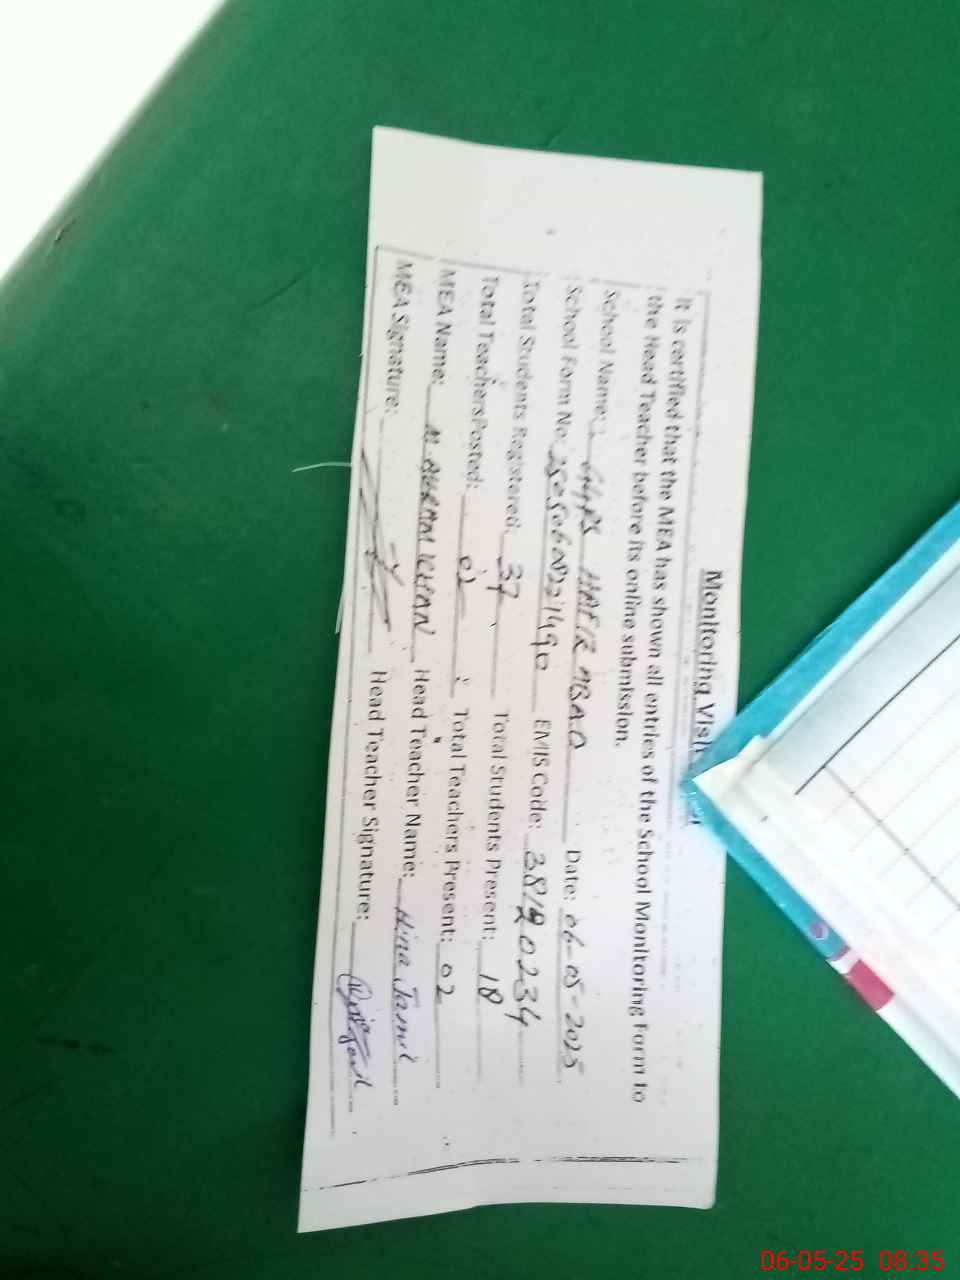 Monitoring Visit
It is certified that the MEA has shown all entries of the School Monitoring Form to
the Head Teacher before its online submission.
School Name: HAFIZ ABAD Date: 06-05-2025
School Form No: EMIS Code:
Total Students Registered: 37 Total Students Present: 18
Total Teachers Posted: 02 Total Teachers Present: 02
MEA Name: KHAN Head Teacher Name: Hina Jamil
MEA Signature: Head Teacher Signature:
06-05-25 08:35